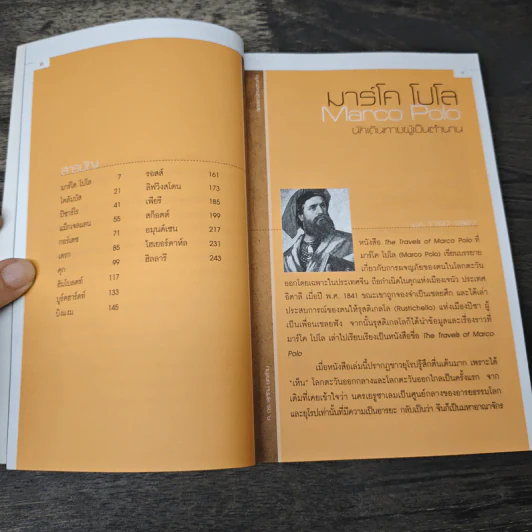 สารบัญ
มาร์โค โปโล 7
โคลัมบัส 21
ปิซาร์โร 41
แม็กเจลแลน 55
กอร์เตซ 71
เดรก 85
คุก 99
ฮัมโบลดต์ 117
บูร์คฮาร์ดท์ 133
บิงแฮม 145
รอสส์ 161
ลิฟวิงสโตน 173
เพียรี 185
สก็อตต์ 199
อมุนด์เซน 217
ไฮเยอร์ดาห์ล 231
ฮิลลารี 243
มาร์โค โปโล
Marco Polo
นักเดินทางผู้เป็นตำนาน
หนังสือ The Travels of Marco Polo ที่
มาร์โค โปโล (Marco Polo) เขียนบรรยาย
เกี่ยวกับการผจญภัยของตนในโลกตะวัน
ออกโดยเฉพาะในประเทศจีน ถือกำเนิดในคุกแห่งเมืองเจนัว ประเทศ
อิตาลี เมื่อปี พ.ศ. 1841 ขณะเขาถูกจองจำเป็นเชลยศึก และได้เล่า
ประสบการณ์ของตนให้รุสติเกลโล (Rustichello) แห่งเมืองปิซา ผู้
เป็นเพื่อนเชลยฟัง จากนั้นรุสติเกลโลก็ได้นำข้อมูลและเรื่องราวที่
มาร์โค โปโล เล่าไปเรียบเรียงเป็นหนังสือชื่อ The Travels of Marco
Polo
เมื่อหนังสือเล่มนี้ปรากฏชาวยุโรปรู้สึกตื่นเต้นมาก เพราะได้
"เห็น" โลกตะวันออกกลางและโลกตะวันออกไกลเป็นครั้งแรก จาก
เดิมที่เคยเข้าใจว่า นครเยรูซาเลมเป็นศูนย์กลางของอารยธรรมโลก
และยุโรปเท่านั้นที่มีความเป็นอารยะ กลับเป็นว่า จีนก็เป็นมหาอาณาจักร